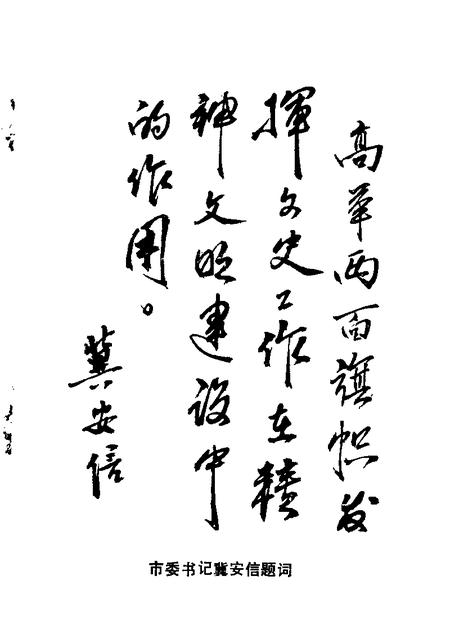 高举两面旗帜发
挥文史工作在精
神文明建设中
的作用。
冀安信
市委书记冀安信题词